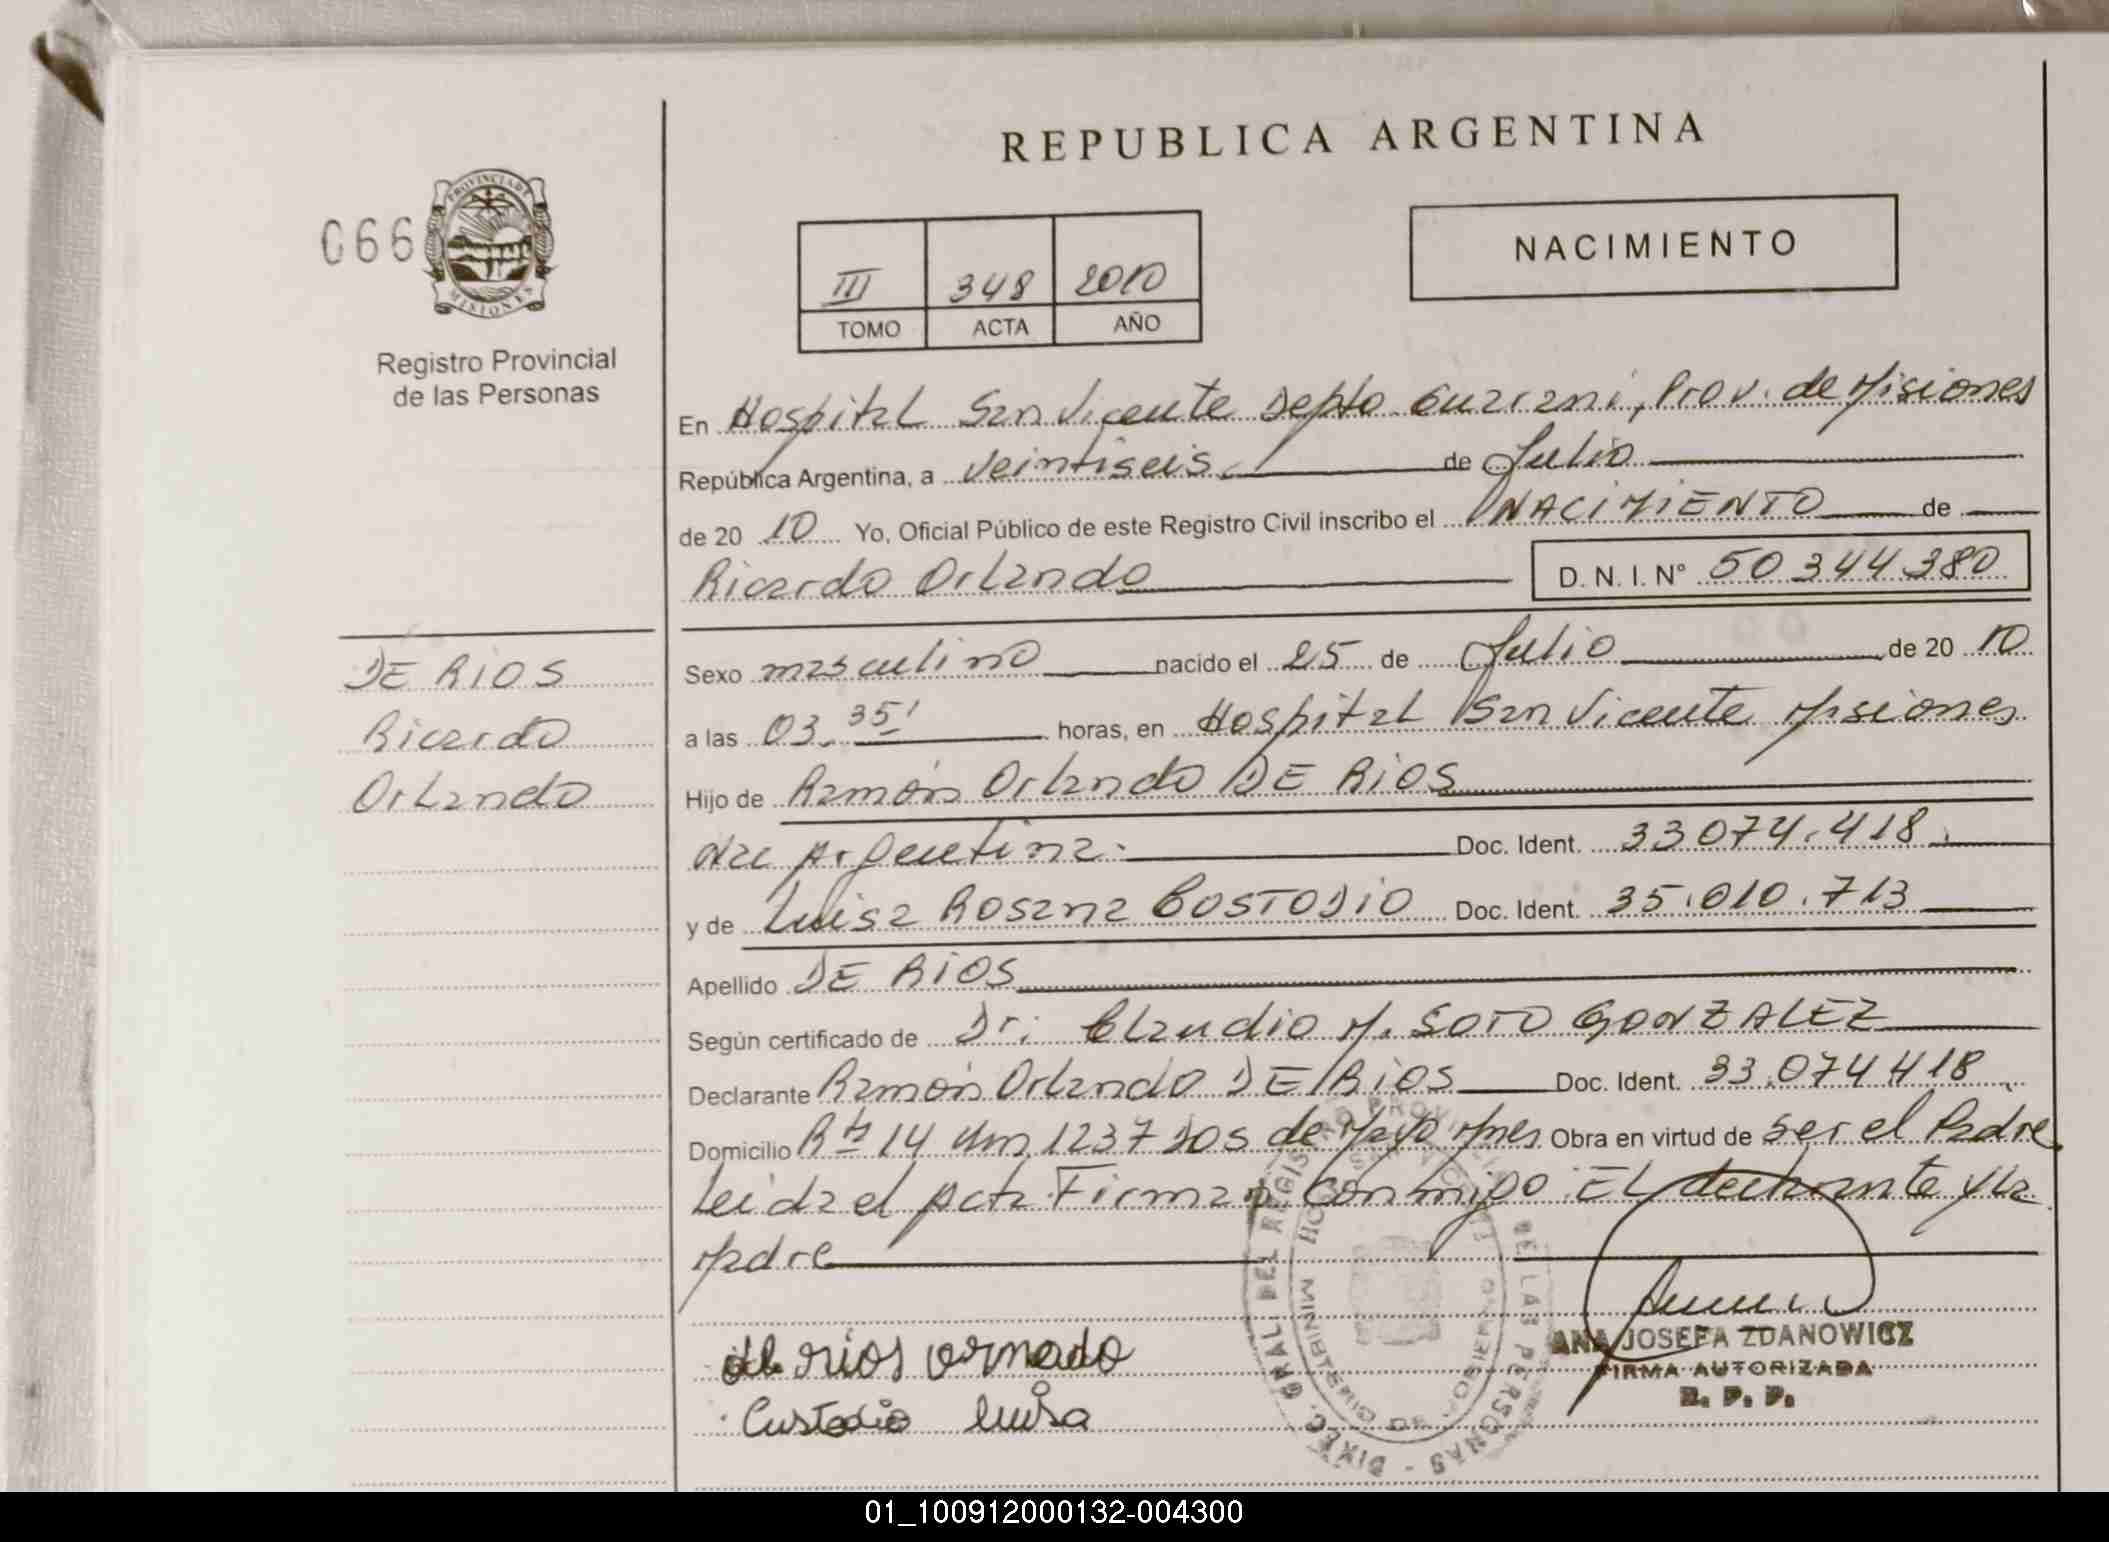 REPUBLICA ARGENTINA
066
PROVINCIA DE
MISIONES
Registro Provincial
de las Personas
III 348 2010
TOMO ACTA AÑO
NACIMIENTO
En Hospital San Vicente Depto Guarani, Prov. de Misiones
República Argentina, a veintiseis de Julio
de 20 10 Yo, Oficial Público de este Registro Civil inscribo el NACIMIENTO de
Ricardo Orlando D. N. I. N° 50344380
DE RIOS
Ricardo
Orlando
Sexo masculino nacido el 25 de Julio de 20 10
a las 03. 35' horas, en Hospital San Vicente Misiones
Hijo de Ramón Orlando DE RIOS
Nac Argentina. Doc. Ident. 33074.418.
y de Luisa Rosana COSTODIO Doc. Ident. 35.010.713
Apellido DE RIOS
Según certificado de Dr: Claudio M. SOTO GONZALEZ
Declarante Ramón Orlando DE RIOS Doc. Ident. 33.074418
Domicilio Rta 14 Km 1237 Dos de Mayo Mnes Obra en virtud de ser el Padre
Leida el Acta Firman Conmigo El declarante y la
Madre
de rios ornado
Custodio luisa
DIREC. GRAL. DEL REGISTRO PROVINCIAL DE LAS PERSONAS
ANA JOSEFA ZDANOWICZ
FIRMA AUTORIZADA
R. P. P.
01_100912000132-004300